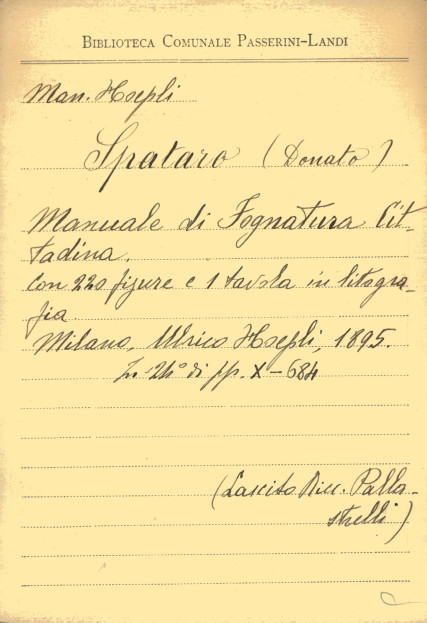 BIBLIOTECA COMUNALE PASSERINI-LANDI
Man. Hoepli
Spataro (Donato)
Manuale di Fognatura Cit-
tadina.
Con 220 figure e 1 tavola in litogra-
fia
Milano, Ulrico Hoepli, 1895.
In 24° di pp. X-684
(Lascito Ricc. Palla-
strelli)